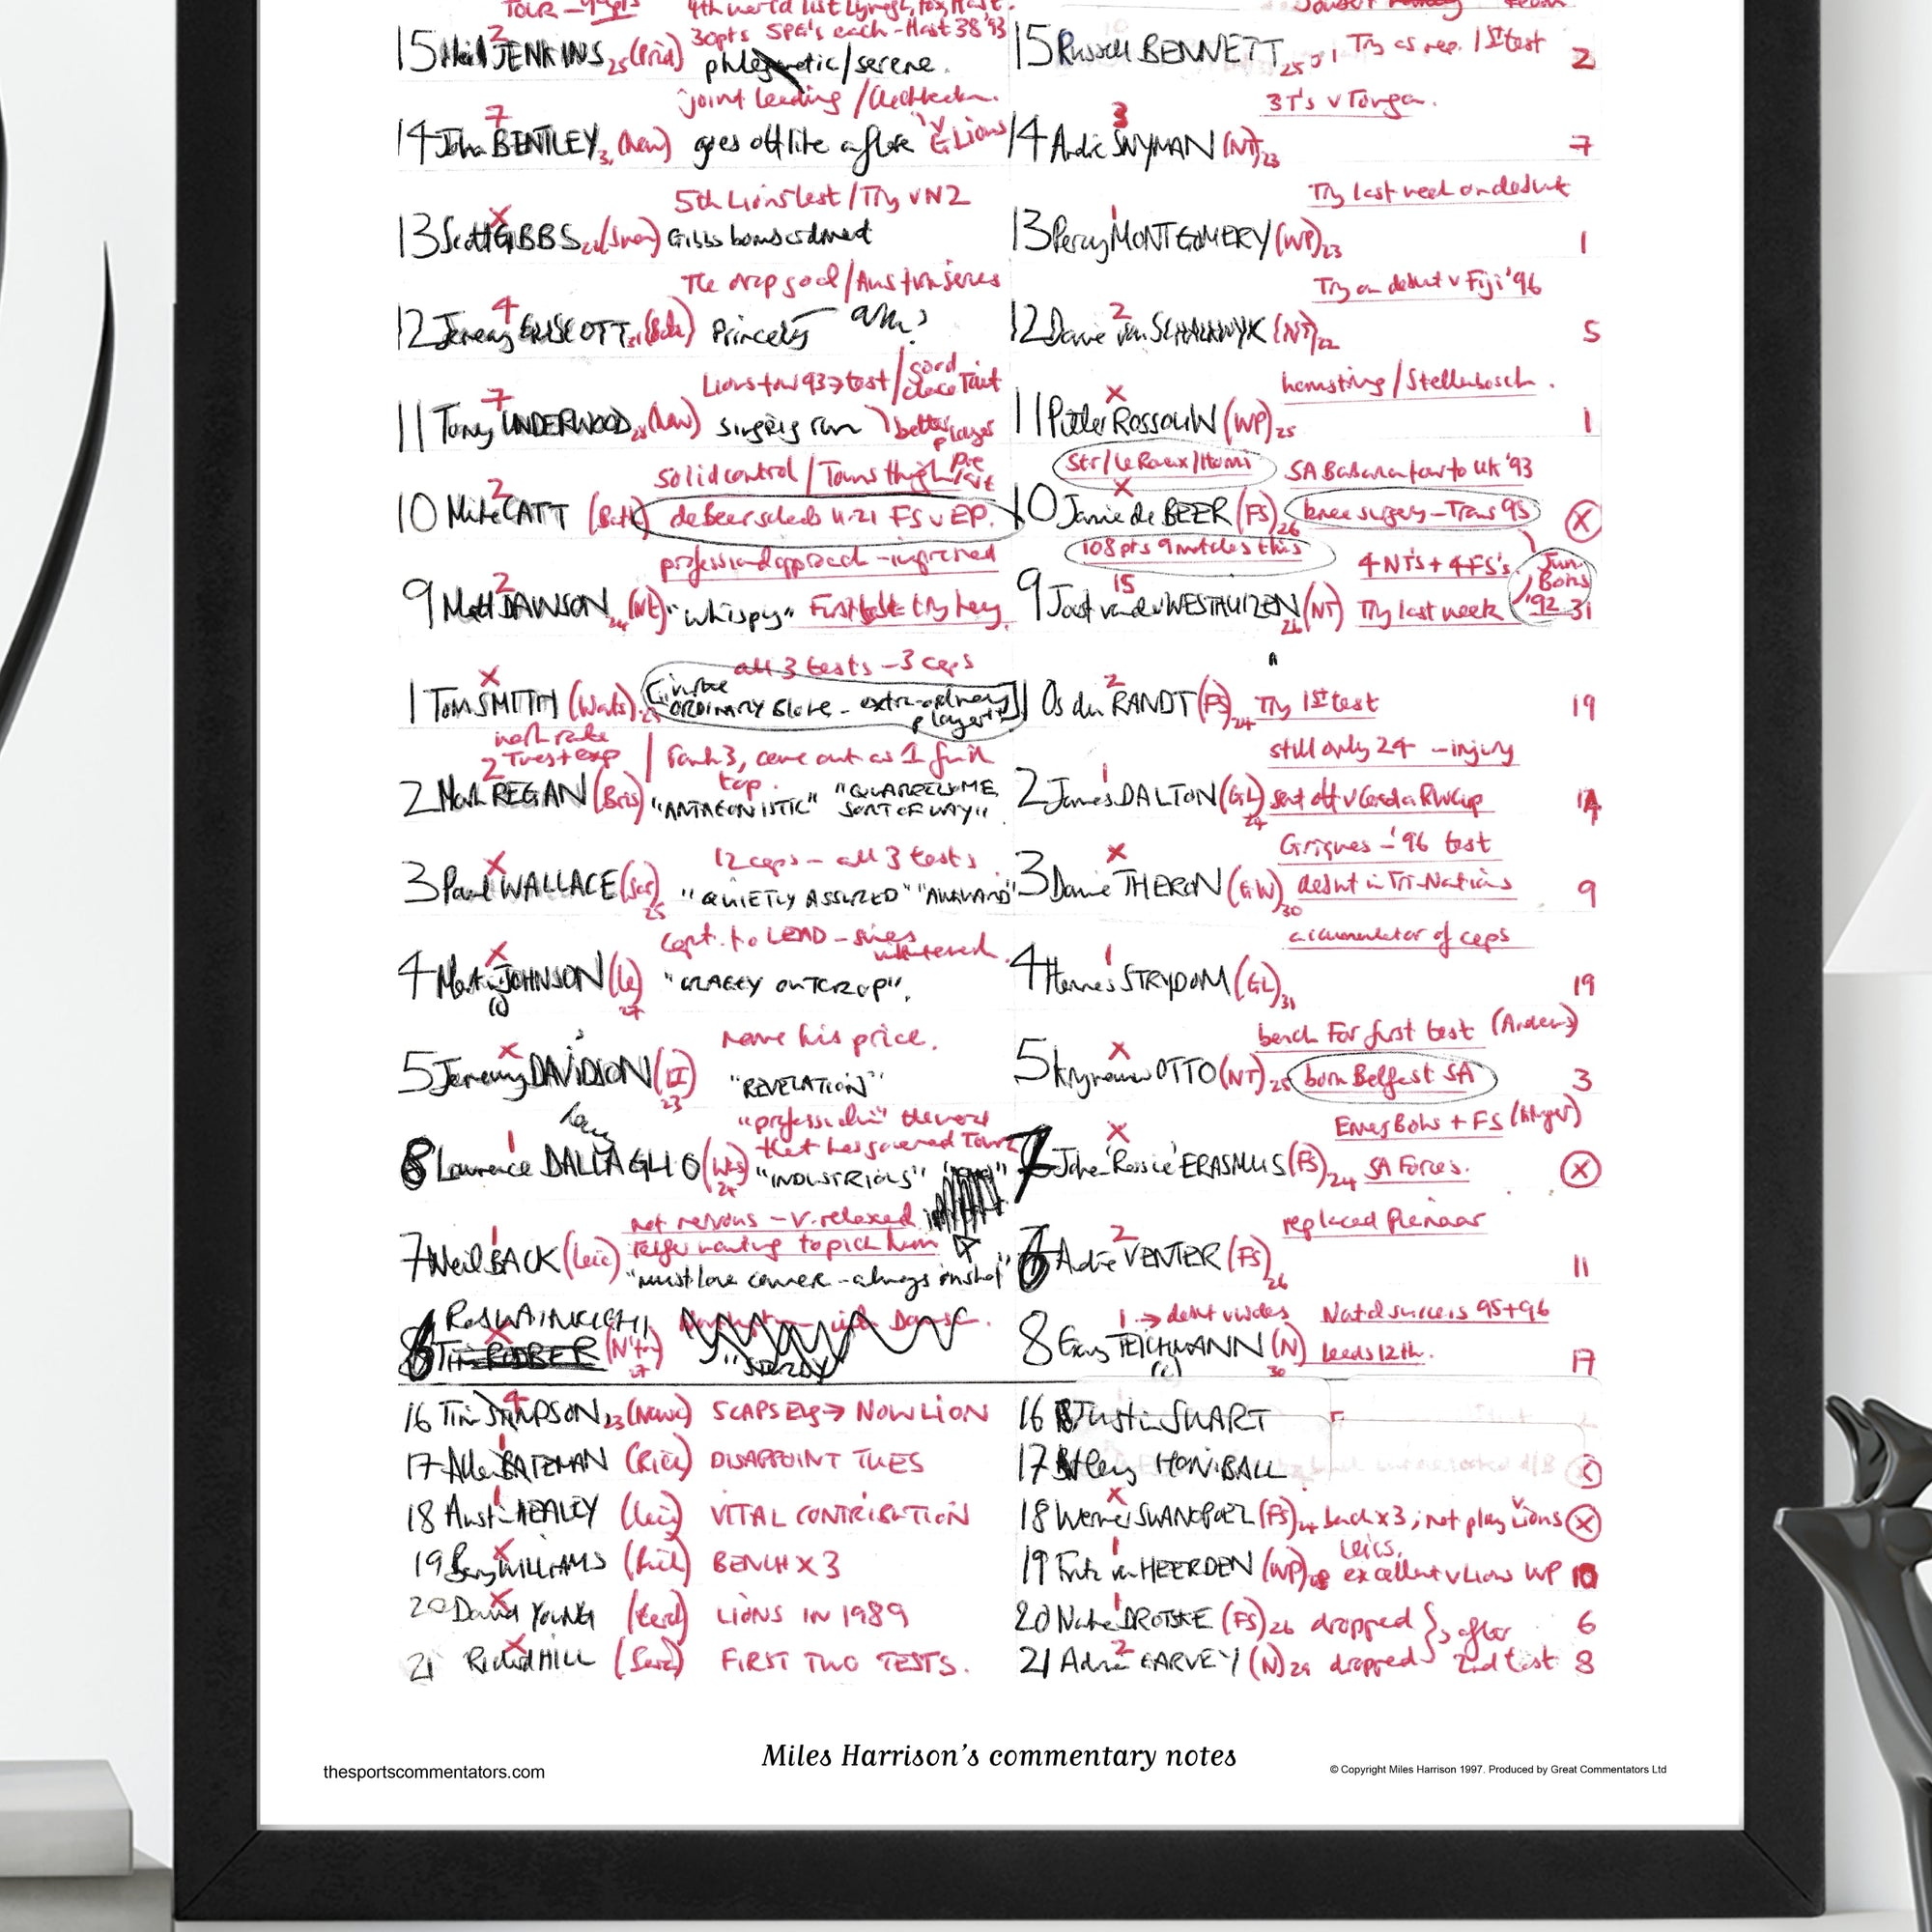 TOUR
4th world list Lynagh, Fox, Hast.
15 Neil JENKINS 25 (Prid) 30pts SPG's each - Hast 38 '93
phlegmatic/serene.
2
joint leading /
14 John BENTLEY (New) goes off like a
7
v G Lions
5th Lions test / Try v N2
13 Scott GIBBS (Swan) Gibbs
X
The drop goal / Aus
12 Jeremy GUSCOTT 31 (Bath) Princely
4
Lions tour 93 → test / good
11 Tony UNDERWOOD 28 (New)
7
better player
solid control / Towns
10 Mike CATT (Bath) de Beer U-21 FS v EP.
2
professional approach - improved
9 Matt DAWSON 24 (N) "whispy" First test try key
2
all 3 tests - 3 caps
1 Tom SMITH (Wats) 25 ORDINARY BLOKE - extra-ordinary
X
player"
work rate
Tues + exp / Front 3, came out as 1 from
top.
2 Mark REGAN (Bris) "ANTAGONISTIC" "QUARRELSOME
2
SORT OF WAY".
12 caps - all 3 tests
3 Paul WALLACE (Sar) 25 "QUIETLY ASSURED" "AWKWARD"
X
Capt. to LEAD -
4 Martin JOHNSON (Le) 27 "CRAGGY OUTCROP".
X
(c)
name his price.
5 Jeremy DAVIDSON (LI) 23 "REVELATION"
X
"professional" the word
that has governed Tour
8 Lawrence DALLAGLIO (Was) 24 "INDUSTRIOUS"
1
not nervous - v. relaxed
wanting to pick him
7 Neil BACK (Leic) "must love camera - always in shot"
1
Rob WAINWRIGHT
6 (N'ton) 27
16 Tim STIMPSON 23 (Newc) 5 CAPS Eng → NOW LION
4
17 Allan BATEMAN (Rich) DISAPPOINT TUES
1
18 Austin HEALEY (Leic) VITAL CONTRIBUTION
1
19 Barry WILLIAMS BENCH X 3
X
20 David YOUNG (Card) LIONS IN 1989
X
21 Richard HILL (Sara) FIRST TWO TESTS.
X
15 Russell BENNETT 25 Try as rep. 1st test 2
3 T's v Tonga.
14 André SNYMAN (NT) 23 7
3
Try last week on debut
13 Percy MONTGOMERY (WP) 23 1
1
Try on debut v Fiji '96
12 Danie van SCHALKWYK (NT) 22 5
2
hamstring / Stellenbosch.
11 Pieter ROSSOUW (WP) 25 1
X
Str / Le Roux / Honi SA Bananas tour to UK '93
10 Jannie de BEER (FS) 26 knee surgery - Trans 95 X
X
108 pts 9 matches this 4 NT's + 4 FS's.
Jun. Boks '92
9 Joost van der WESTHUIZEN (NT) 26 Try last week 31
15
1 Os du RANDT (FS) 24 Try 1st test 19
2
still only 24 - injury
2 James DALTON (GL) 24 sent off v Canada RWCup 14
1
Griquas - '96 test
3 Dawie THERON (GW) 30 debut in Tri-Nations 9
X
accumulator of caps
4 Hannes STRYDOM (GL) 31 19
1
bench for first test (Andrews)
5 Krynauw OTTO (NT) 25 born Belfast SA 3
X
Emerg Boks + FS (Kruger)
7 Johan 'Rassie' ERASMUS (FS) 24 SA Forces. X
X
replaced Pienaar
6 André VENTER (FS) 26 11
2
1 → debut v Wales Natal success 95+96
8 Gary TEICHMANN (N) 30 Leeds 12th. 17
(c)
16 Justin SWART
17 Henry HONIBALL
18 Werner SWANEPOEL (FS) 24 bench x 3; not play v Lions X
X
Leics,
19 Fritz van HEERDEN (WP) excellent v Lions WP 10
1
20 Naka DROTSKE (FS) 26 dropped } after 6
1
21 Adrian GARVEY (N) 29 dropped } 2nd test 8
2
Miles Harrison's commentary notes
thesportscommentators.com
© Copyright Miles Harrison 1997. Produced by Great Commentators Ltd